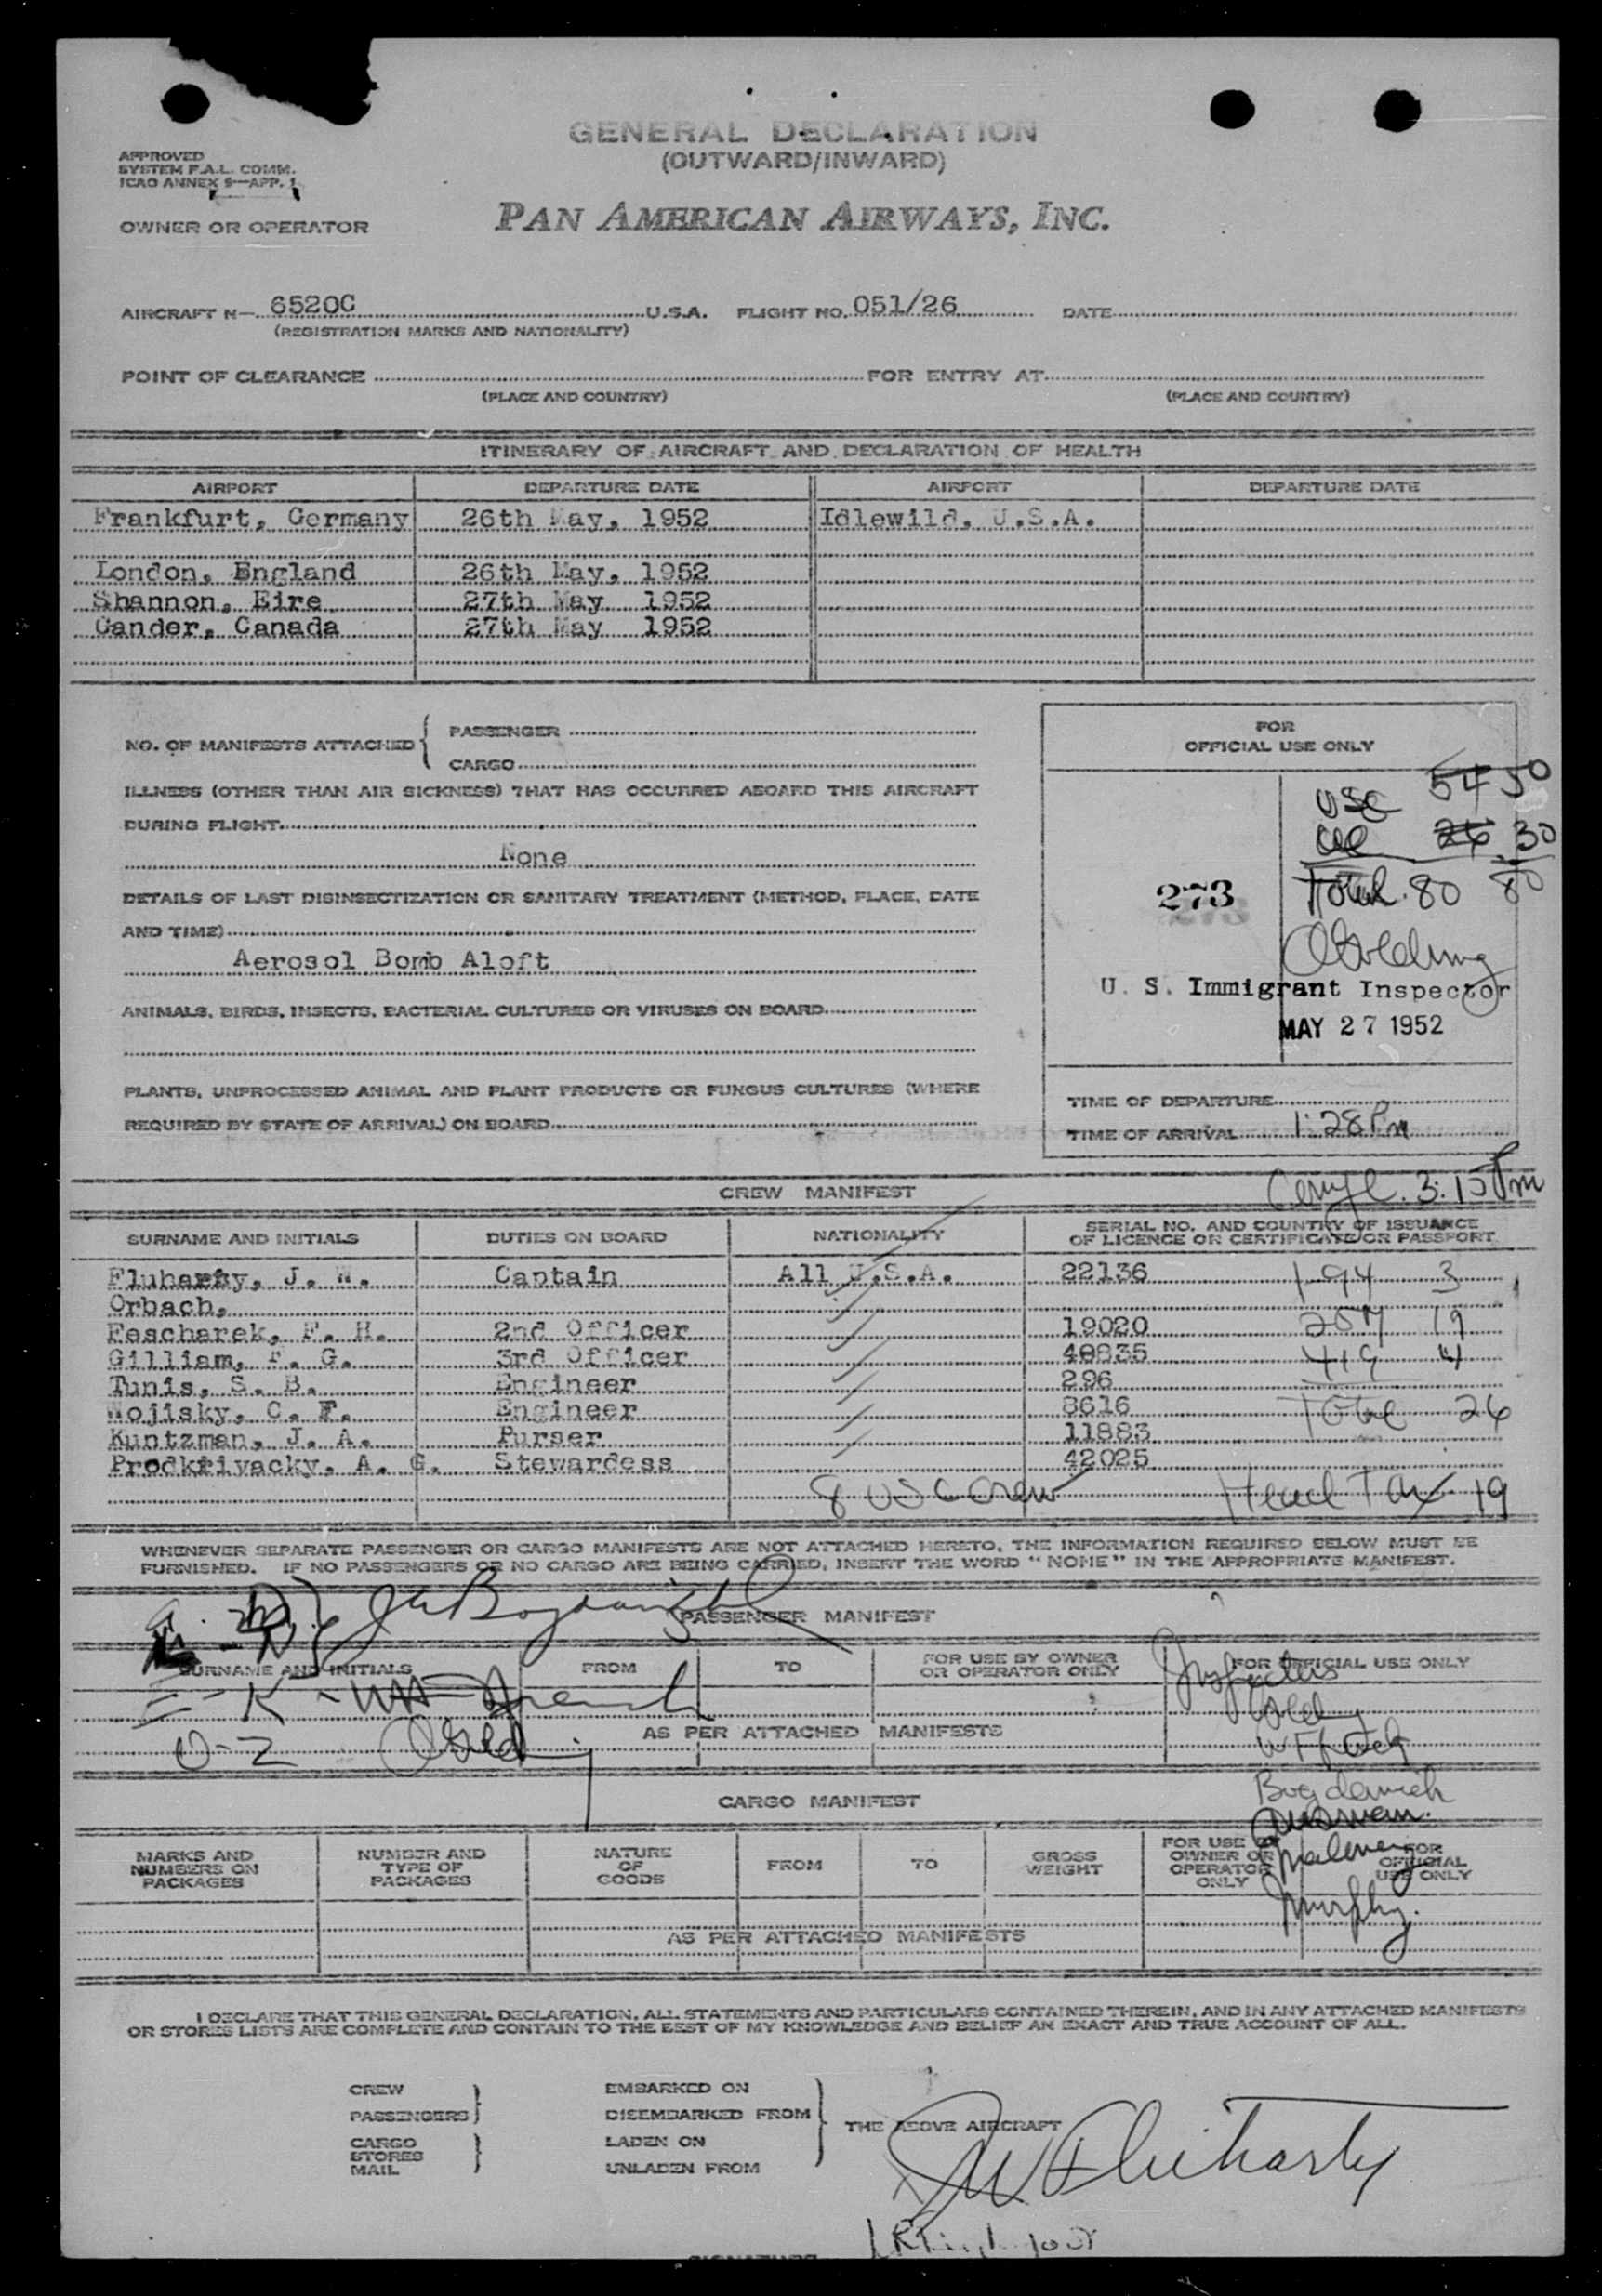 GENERAL DECLARATION
(OUTWARD/INWARD)
APPROVED
SYSTEM F.A.L. COMM.
ICAO ANNEX 9—APP. 1
OWNER OR OPERATOR
PAN AMERICAN AIRWAYS, INC.
AIRCRAFT N— 6520C U.S.A. FLIGHT NO. 051/26 DATE
(REGISTRATION MARKS AND NATIONALITY)
POINT OF CLEARANCE FOR ENTRY AT
(PLACE AND COUNTRY) (PLACE AND COUNTRY)
ITINERARY OF AIRCRAFT AND DECLARATION OF HEALTH
AIRPORT DEPARTURE DATE AIRPORT DEPARTURE DATE
Frankfurt, Germany 26th May, 1952 Idlewild, U.S.A.
London, England 26th May, 1952
Shannon, Eire 27th May 1952
Gander, Canada 27th May 1952
NO. OF MANIFESTS ATTACHED { PASSENGER
CARGO
ILLNESS (OTHER THAN AIR SICKNESS) THAT HAS OCCURRED ABOARD THIS AIRCRAFT
DURING FLIGHT
None
DETAILS OF LAST DISINSECTIZATION OR SANITARY TREATMENT (METHOD, PLACE, DATE
AND TIME)
Aerosol Bomb Aloft
ANIMALS, BIRDS, INSECTS, BACTERIAL CULTURES OR VIRUSES ON BOARD
PLANTS, UNPROCESSED ANIMAL AND PLANT PRODUCTS OR FUNGUS CULTURES (WHERE
REQUIRED BY STATE OF ARRIVAL) ON BOARD
FOR
OFFICIAL USE ONLY
USC 54 50
26 30
273
Total 80 80
U. S. Immigrant Inspector
MAY 27 1952
TIME OF DEPARTURE
TIME OF ARRIVAL 1:28 Pm
3:15 Pm
CREW MANIFEST
SURNAME AND INITIALS DUTIES ON BOARD NATIONALITY SERIAL NO. AND COUNTRY OF ISSUANCE
OF LICENCE OR CERTIFICATE OR PASSPORT
Fluharty, J. W. Captain All U.S.A. 22136 194 3
Orbach,
Pascharek, F. H. 2nd Officer 19020 257 19
Gilliam, F. G. 3rd Officer 40835 419 4
Tunis, S. B. Engineer 296
Wojisky, C. F. Engineer 8616 Total 26
Kuntzman, J. A. Purser 11883
Prodkrivacky, A. G. Stewardess 42025
8 USC Crew Head Tax 19
WHENEVER SEPARATE PASSENGER OR CARGO MANIFESTS ARE NOT ATTACHED HERETO, THE INFORMATION REQUIRED BELOW MUST BE
FURNISHED. IF NO PASSENGERS OR NO CARGO ARE BEING CARRIED, INSERT THE WORD "NONE" IN THE APPROPRIATE MANIFEST.
PASSENGER MANIFEST
SURNAME AND INITIALS FROM TO FOR USE BY OWNER
OR OPERATOR ONLY FOR OFFICIAL USE ONLY
Inspectors
AS PER ATTACHED MANIFESTS
O-Z
Bogdanich
CARGO MANIFEST
MARKS AND
NUMBERS ON
PACKAGES NUMBER AND
TYPE OF
PACKAGES NATURE
OF
GOODS FROM TO GROSS
WEIGHT FOR USE
OWNER OR
OPERATOR
ONLY FOR
OFFICIAL
USE ONLY
Murphy
AS PER ATTACHED MANIFESTS
I DECLARE THAT THIS GENERAL DECLARATION, ALL STATEMENTS AND PARTICULARS CONTAINED THEREIN, AND IN ANY ATTACHED MANIFESTS
OR STORES LISTS ARE COMPLETE AND CONTAIN TO THE BEST OF MY KNOWLEDGE AND BELIEF AN EXACT AND TRUE ACCOUNT OF ALL.
CREW EMBARKED ON
PASSENGERS DISEMBARKED FROM THE ABOVE AIRCRAFT
CARGO LADEN ON
STORES
MAIL UNLADEN FROM
JW Fluharty
SIGNATURE